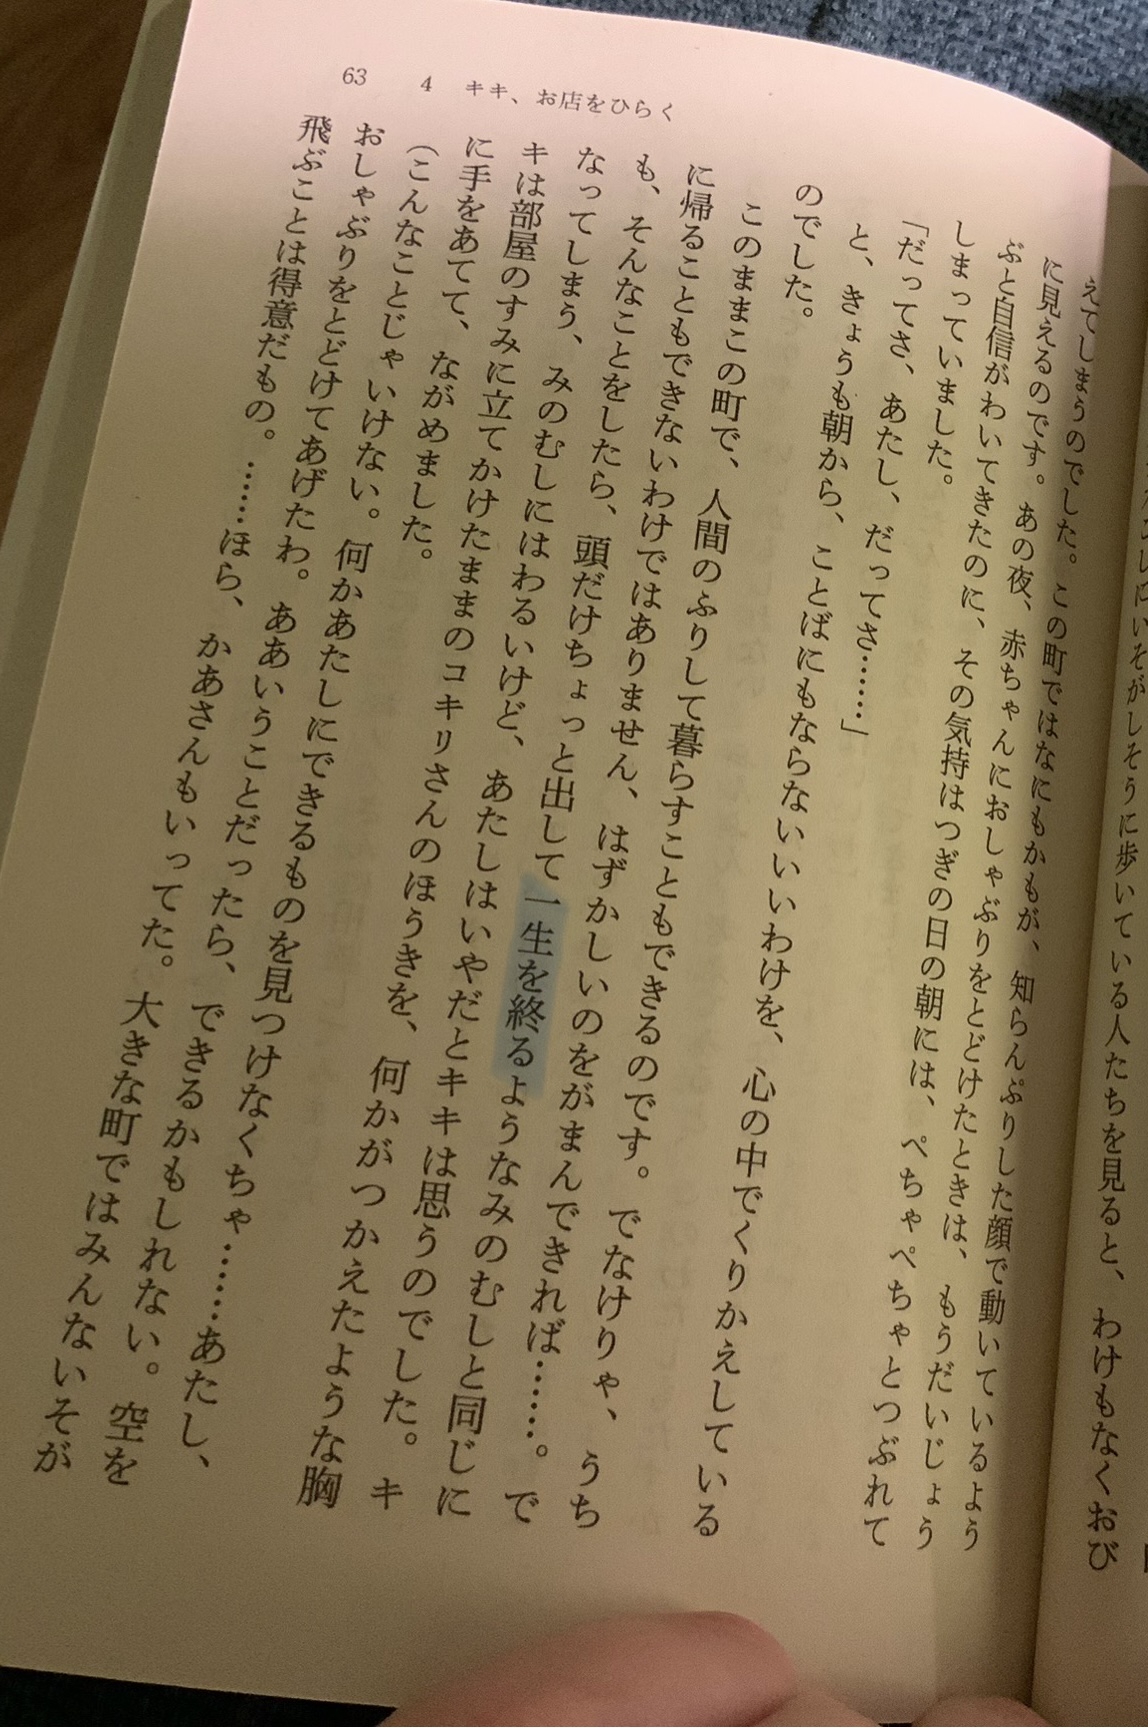 63　4　キキ、お店をひらく
いそがしそうに歩いている人たちを見ると、わけもなくおび
えてしまうのでした。この町ではなにもかもが、知らんぷりした顔で動いているよう
に見えるのです。あの夜、赤ちゃんにおしゃぶりをとどけたときは、もうだいじょう
ぶと自信がわいてきたのに、その気持はつぎの日の朝には、ぺちゃぺちゃとつぶれて
しまっていました。
「だってさ、あたし、だってさ……」
と、きょうも朝から、ことばにもならないいいわけを、心の中でくりかえしている
のでした。
このままこの町で、人間のふりして暮らすこともできるのです。でなけりゃ、うち
に帰ることもできないわけではありません、はずかしいのをがまんできれば……。で
も、そんなことをしたら、頭だけちょっと出して一生を終るようなみのむしと同じに
なってしまう、みのむしにはわるいけど、あたしはいやだとキキは思うのでした。キ
キは部屋のすみに立てかけたままのコキリさんのほうきを、何かがつかえたような胸
に手をあてて、ながめました。
（こんなことじゃいけない。何かあたしにできるものを見つけなくちゃ……あたし、
おしゃぶりをとどけてあげたわ。ああいうことだったら、できるかもしれない。空を
飛ぶことは得意だもの。……ほら、かあさんもいってた。大きな町ではみんないそが